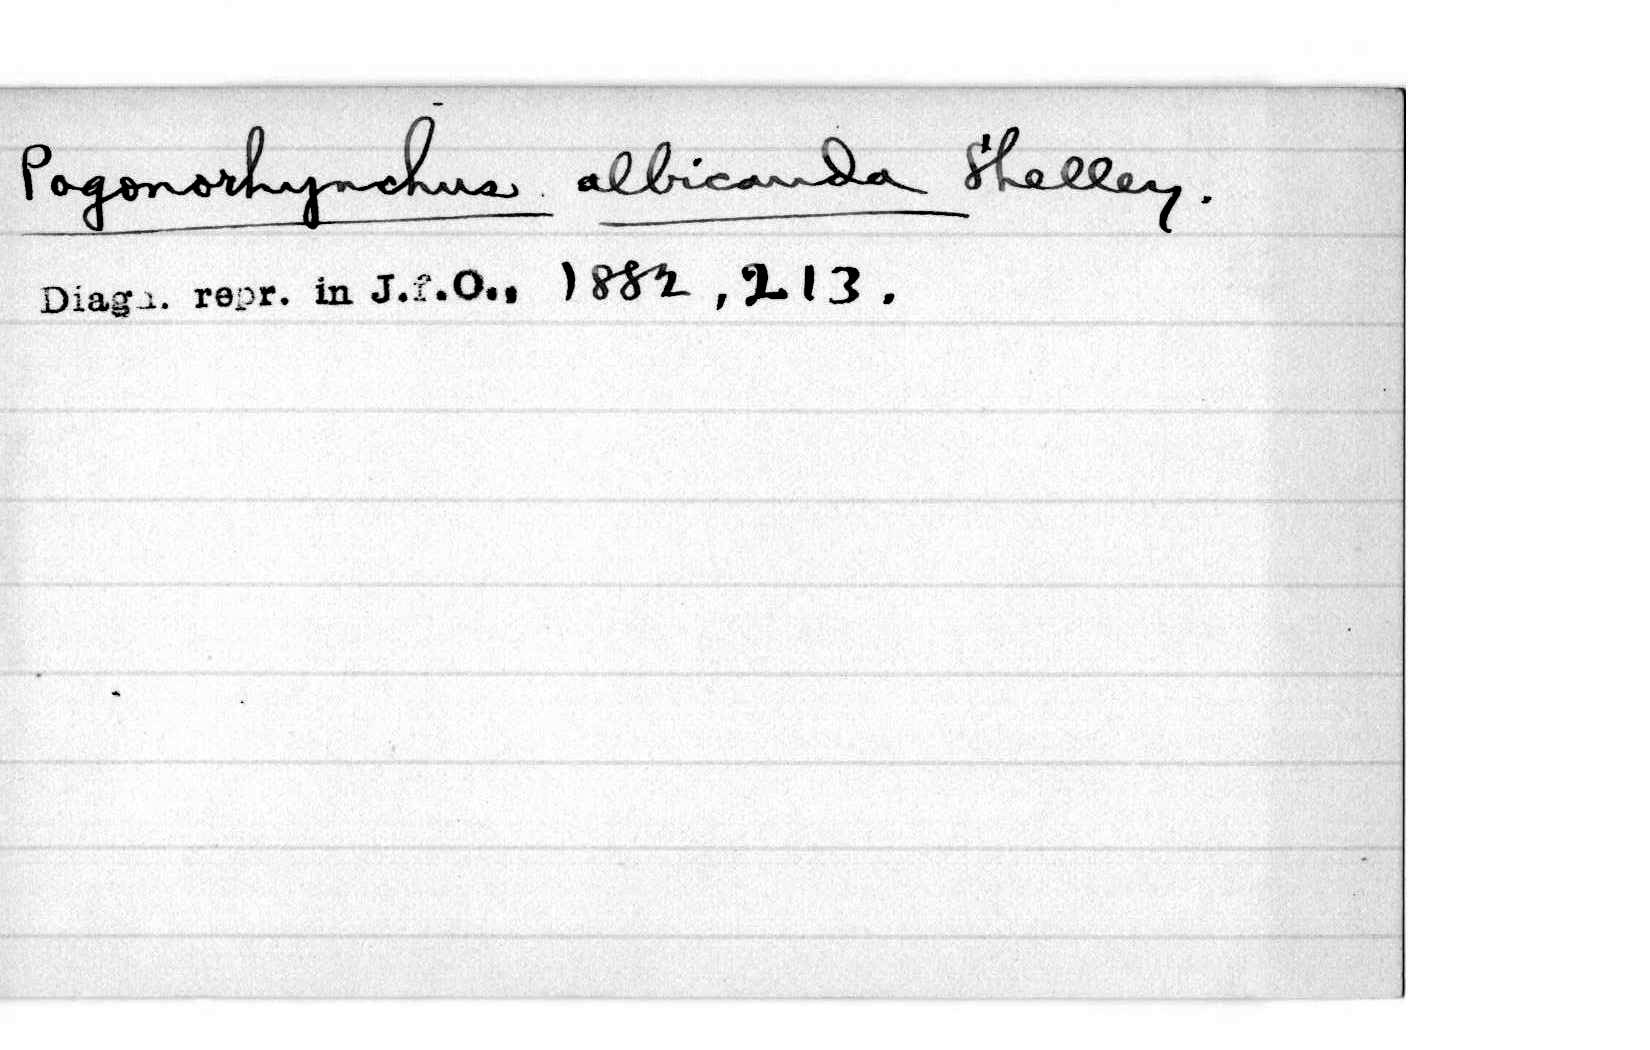 Pogonorhynchus albicauda Shelley.
Diagn. repr. in J.f.O., 1882, 213.